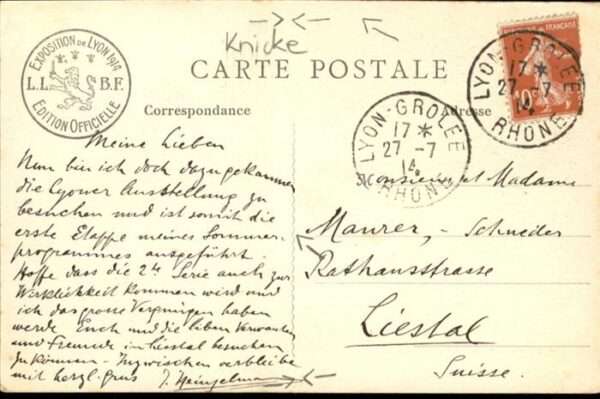 Knicke
CARTE POSTALE
EXPOSITION DE LYON 1914
L.L. B.F.
EDITION OFFICIELLE
Correspondance
Adresse
LYON-GROLÉE
17 *
27 -7
14
RHONE
LYON-GROLÉE
17 *
27 -7
14.
RHONE
10
Meine Lieben
Nun bin ich doch dazu gekommen
die Lyoner Ausstellung zu
besuchen und ist somit die
erste Etappe meines Sommer-
programmes ausgeführt.
Hoffe dass die 2te Serie auch zur
Wirklichkeit kommen wird und
ich das grosse Vergnügen haben
werde Euch und die lieben Verwandten
und Freunde in Liestal besuchen
zu können - Inzwischen verbleibe
mit herzl. grus J.
Monsieur et Madame
Maurer, - Schneider
Rathausstrasse
Liestal
Suisse.